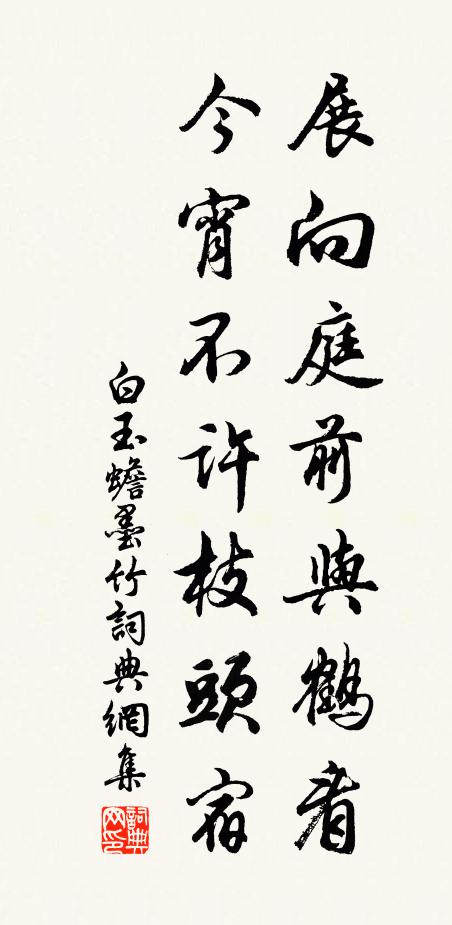 展向庭前與鶴看
今宵不許枝頭宿
白玉蟾墨竹詞典網集
詞典
网印